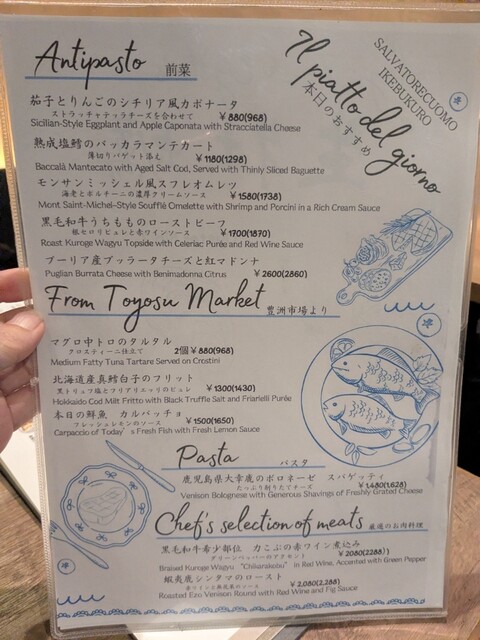 Il piatto del giorno
本日のおすすめ
SALVATORECUOMO
IKEBUKURO
Antipasto 前菜
茄子とりんごのシチリア風カポナータ
ストラッチャテッラチーズを合わせて ￥880(968)
Sicilian-Style Eggplant and Apple Caponata with Stracciatella Cheese
熟成塩鱈のバッカラマンテカート
薄切りバゲット添え ￥1180(1298)
Baccalà Mantecato with Aged Salt Cod, Served with Thinly Sliced Baguette
モンサンミッシェル風スフレオムレツ
海老とポルチーニの濃厚クリームソース ￥1580(1738)
Mont Saint-Michel-Style Soufflé Omelette with Shrimp and Porcini in a Rich Cream Sauce
黒毛和牛うちもものローストビーフ
根セロリピュレと赤ワインソース ￥1700(1870)
Roast Kuroge Wagyu Topside with Celeriac Purée and Red Wine Sauce
プーリア産ブッラータチーズと紅マドンナ
￥2600(2860)
Puglian Burrata Cheese with Benimadonna Citrus
From Toyosu Market 豊洲市場より
マグロ中トロのタルタル
クロスティーニ仕立て 2個￥880(968)
Medium Fatty Tuna Tartare Served on Crostini
北海道産真鱈白子のフリット
黒トリュフ塩とフリアリエッリのピュレ ￥1300(1430)
Hokkaido Cod Milt Fritto with Black Truffle Salt and Friarielli Purée
本日の鮮魚 カルパッチョ
フレッシュレモンのソース ￥1500(1650)
Carpaccio of Today's Fresh Fish with Fresh Lemon Sauce
Pasta パスタ
鹿児島県大幸鹿のボロネーゼ スパゲッティ
たっぷり削りたてチーズ ￥1,480(1,628)
Venison Bolognese with Generous Shavings of Freshly Grated Cheese
Chef's selection of meats 厳選のお肉料理
黒毛和牛希少部位 力こぶの赤ワイン煮込み
グリーンペッパーのアクセント ￥2080(2288))
Braised Kuroge Wagyu "Chikarakobu" in Red Wine, Accented with Green Pepper
蝦夷鹿シンタマのロースト
赤ワインと無花果のソース ￥2,080(2,288)
Roasted Ezo Venison Round with Red Wine and Fig Sauce